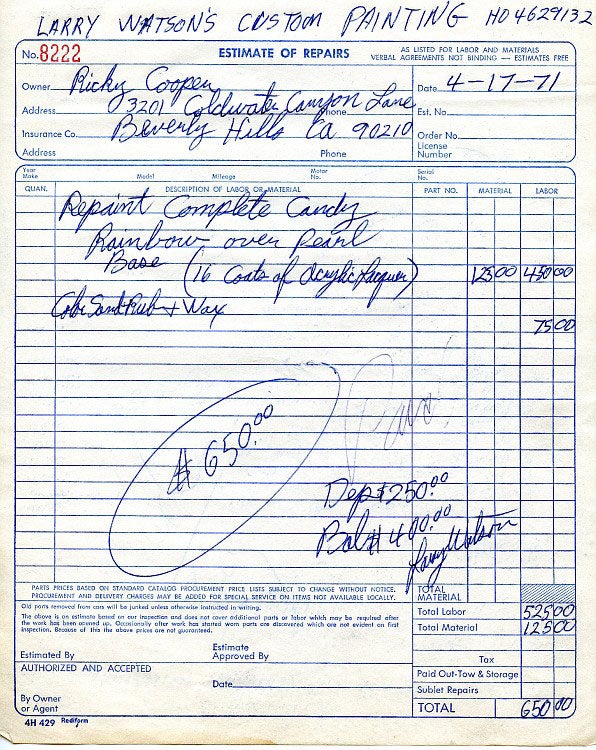 LARRY WATSON'S CUSTOM PAINTING HO 4629132
No. 8222
ESTIMATE OF REPAIRS
AS LISTED FOR LABOR AND MATERIALS
VERBAL AGREEMENTS NOT BINDING — ESTIMATES FREE
Owner Ricky Cooper
Date 4-17-71
Address 3201 Coldwater Canyon Lane
Phone
Est. No.
Insurance Co. Beverly Hills Ca 90210
Order No.
Address
Phone
License Number
Year Make
Model
Mileage
Motor No.
Serial No.
QUAN. DESCRIPTION OF LABOR OR MATERIAL PART NO. MATERIAL LABOR
Repaint Complete Candy
Rainbow over Pearl
Base (16 Coats of Acrylic Lacquer) 125 00 450 00
Color Sand Rub + Wax
75 00
$ 650.00
Dep $ 250.00
Bal $ 400.00
Larry Watson
PARTS PRICES BASED ON STANDARD CATALOG PROCUREMENT PRICE LISTS SUBJECT TO CHANGE WITHOUT NOTICE.
PROCUREMENT AND DELIVERY CHARGES MAY BE ADDED FOR SPECIAL SERVICE ON ITEMS NOT AVAILABLE LOCALLY.
TOTAL MATERIAL
Old parts removed from cars will be junked unless otherwise instructed in writing.
Total Labor 525 00
The above is an estimate based on our inspection and does not cover additional parts or labor which may be required after
the work has been opened up. Occasionally after work has started worn parts are discovered which are not evident on first
inspection. Because of this the above prices are not guaranteed.
Total Material 125 00
Estimated By
Estimate Approved By
Tax
AUTHORIZED AND ACCEPTED
Paid Out-Tow & Storage
Date
Sublet Repairs
By Owner or Agent
TOTAL 650 00
4H 429 Rediform